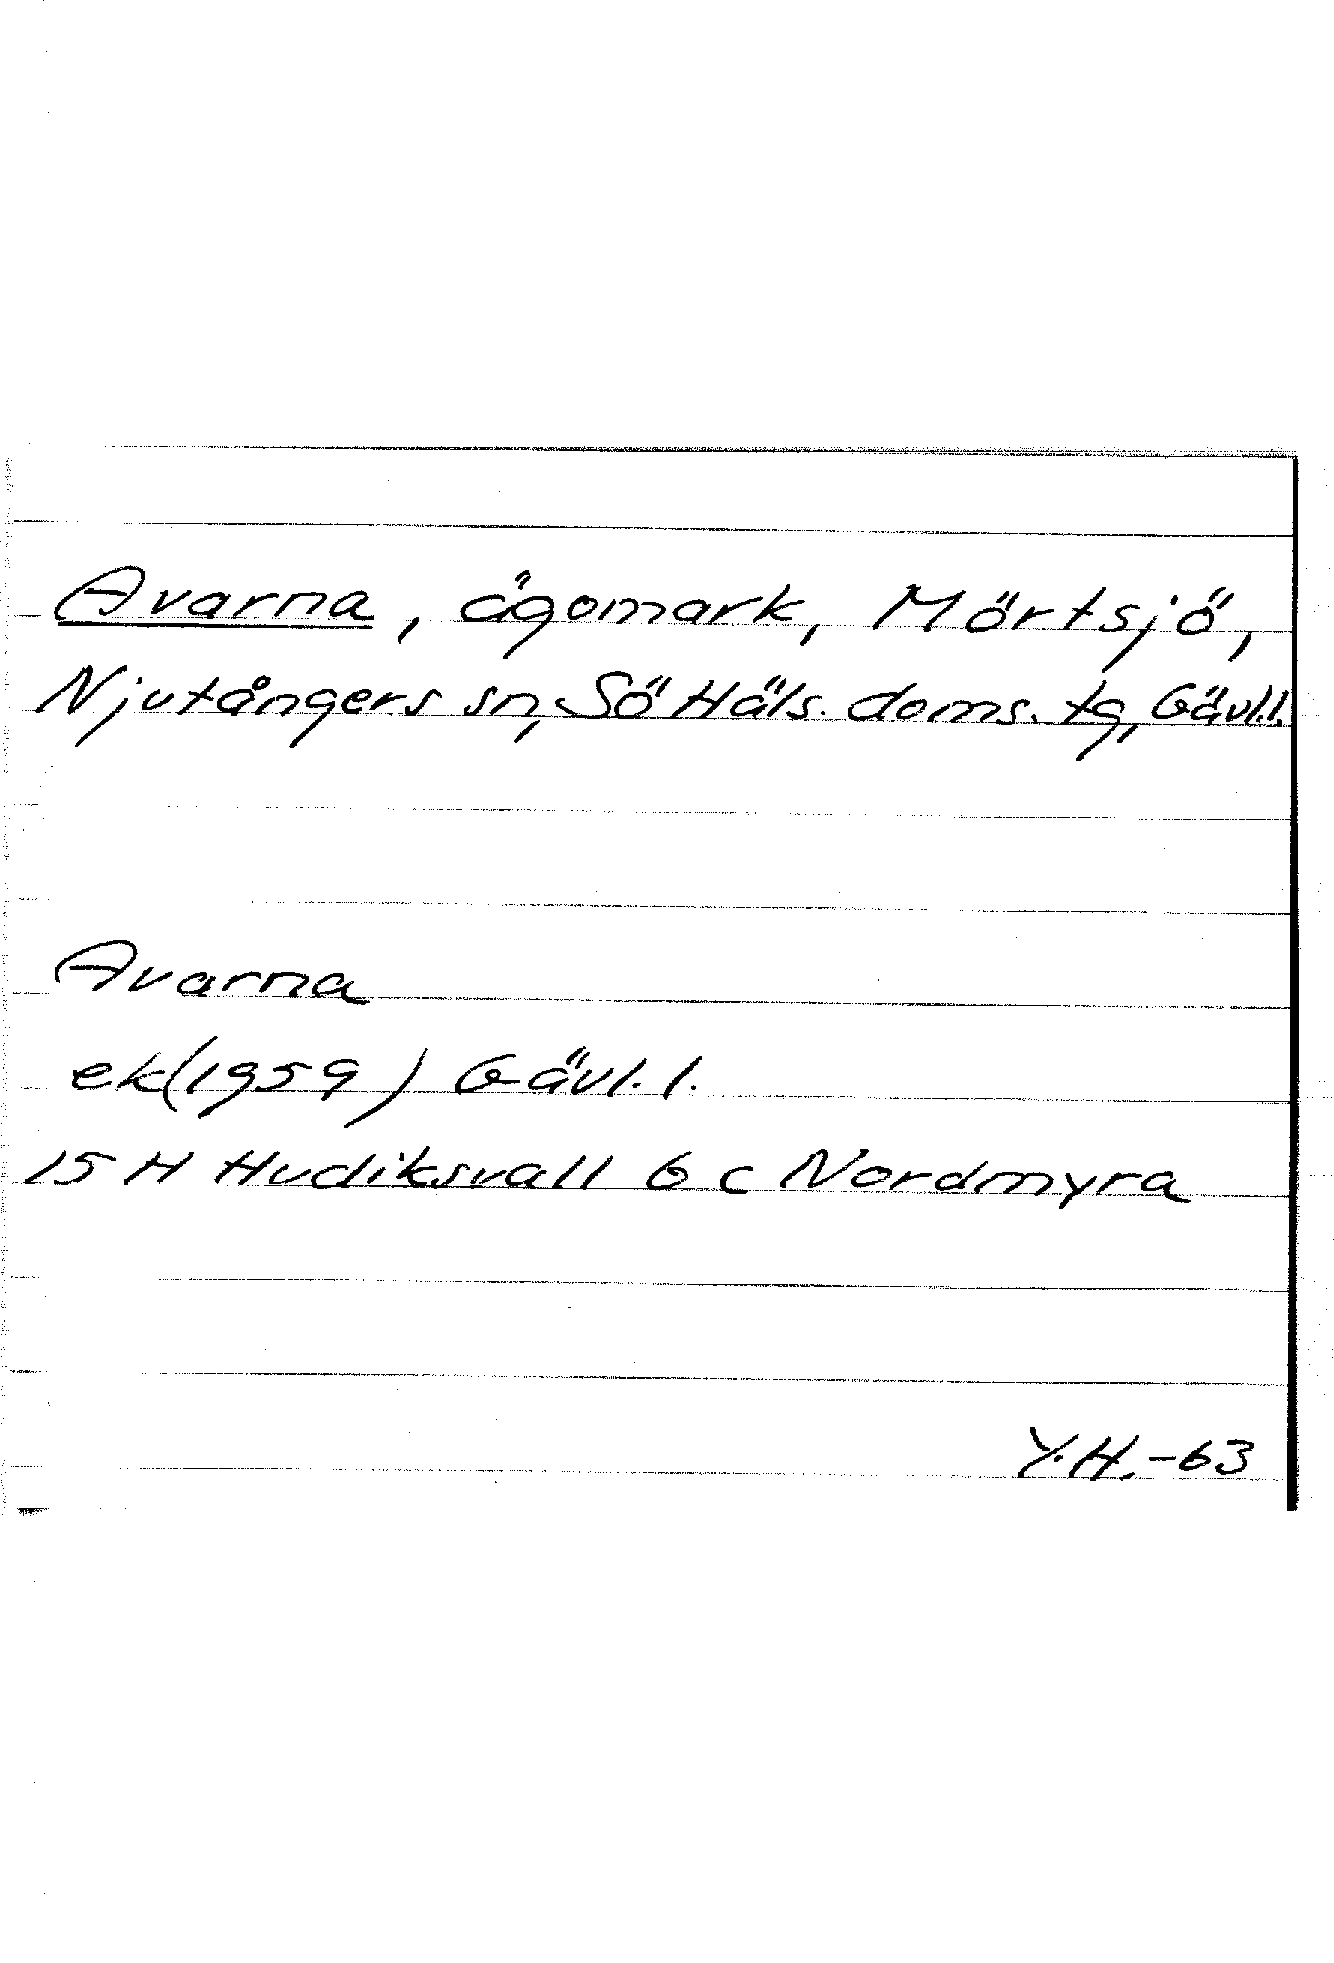 Avarna, ägomark, Mörtsjö,
Njutångers sn, Sö Häls. doms. tg, Gävl.l.
Avarna
ek (1959) Gävl. l.
15 H Hudiksvall 6 c Nordmyra
Y.H. -63